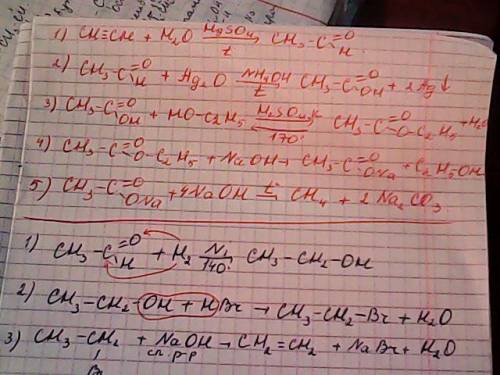 1) CH≡CH + H2O —HgSO4, t→ CH3-C(=O)H.
2) CH3-C(=O)H + Ag2O —NH4OH, t→ CH3-C(=O)OH + 2Ag↓
3) CH3-C(=O)OH + HO-C2H5 ⇌ H2SO4, 170° CH3-C(=O)O-C2H5 + H2O
4) CH3-C(=O)O-C2H5 + NaOH → CH3-C(=O)ONa + C2H5OH
5) CH3-C(=O)ONa + 4NaOH —t°→ CH4 + 2Na2CO3
1) CH3-C(=O)H + H2 —Ni, 140°→ CH3-CH2-OH
2) CH3-CH2-OH + HBr → CH3-CH2-Br + H2O
3) CH3-CH2 + NaOH → CH2=CH2 + NaBr + H2O
Br сп. р-р